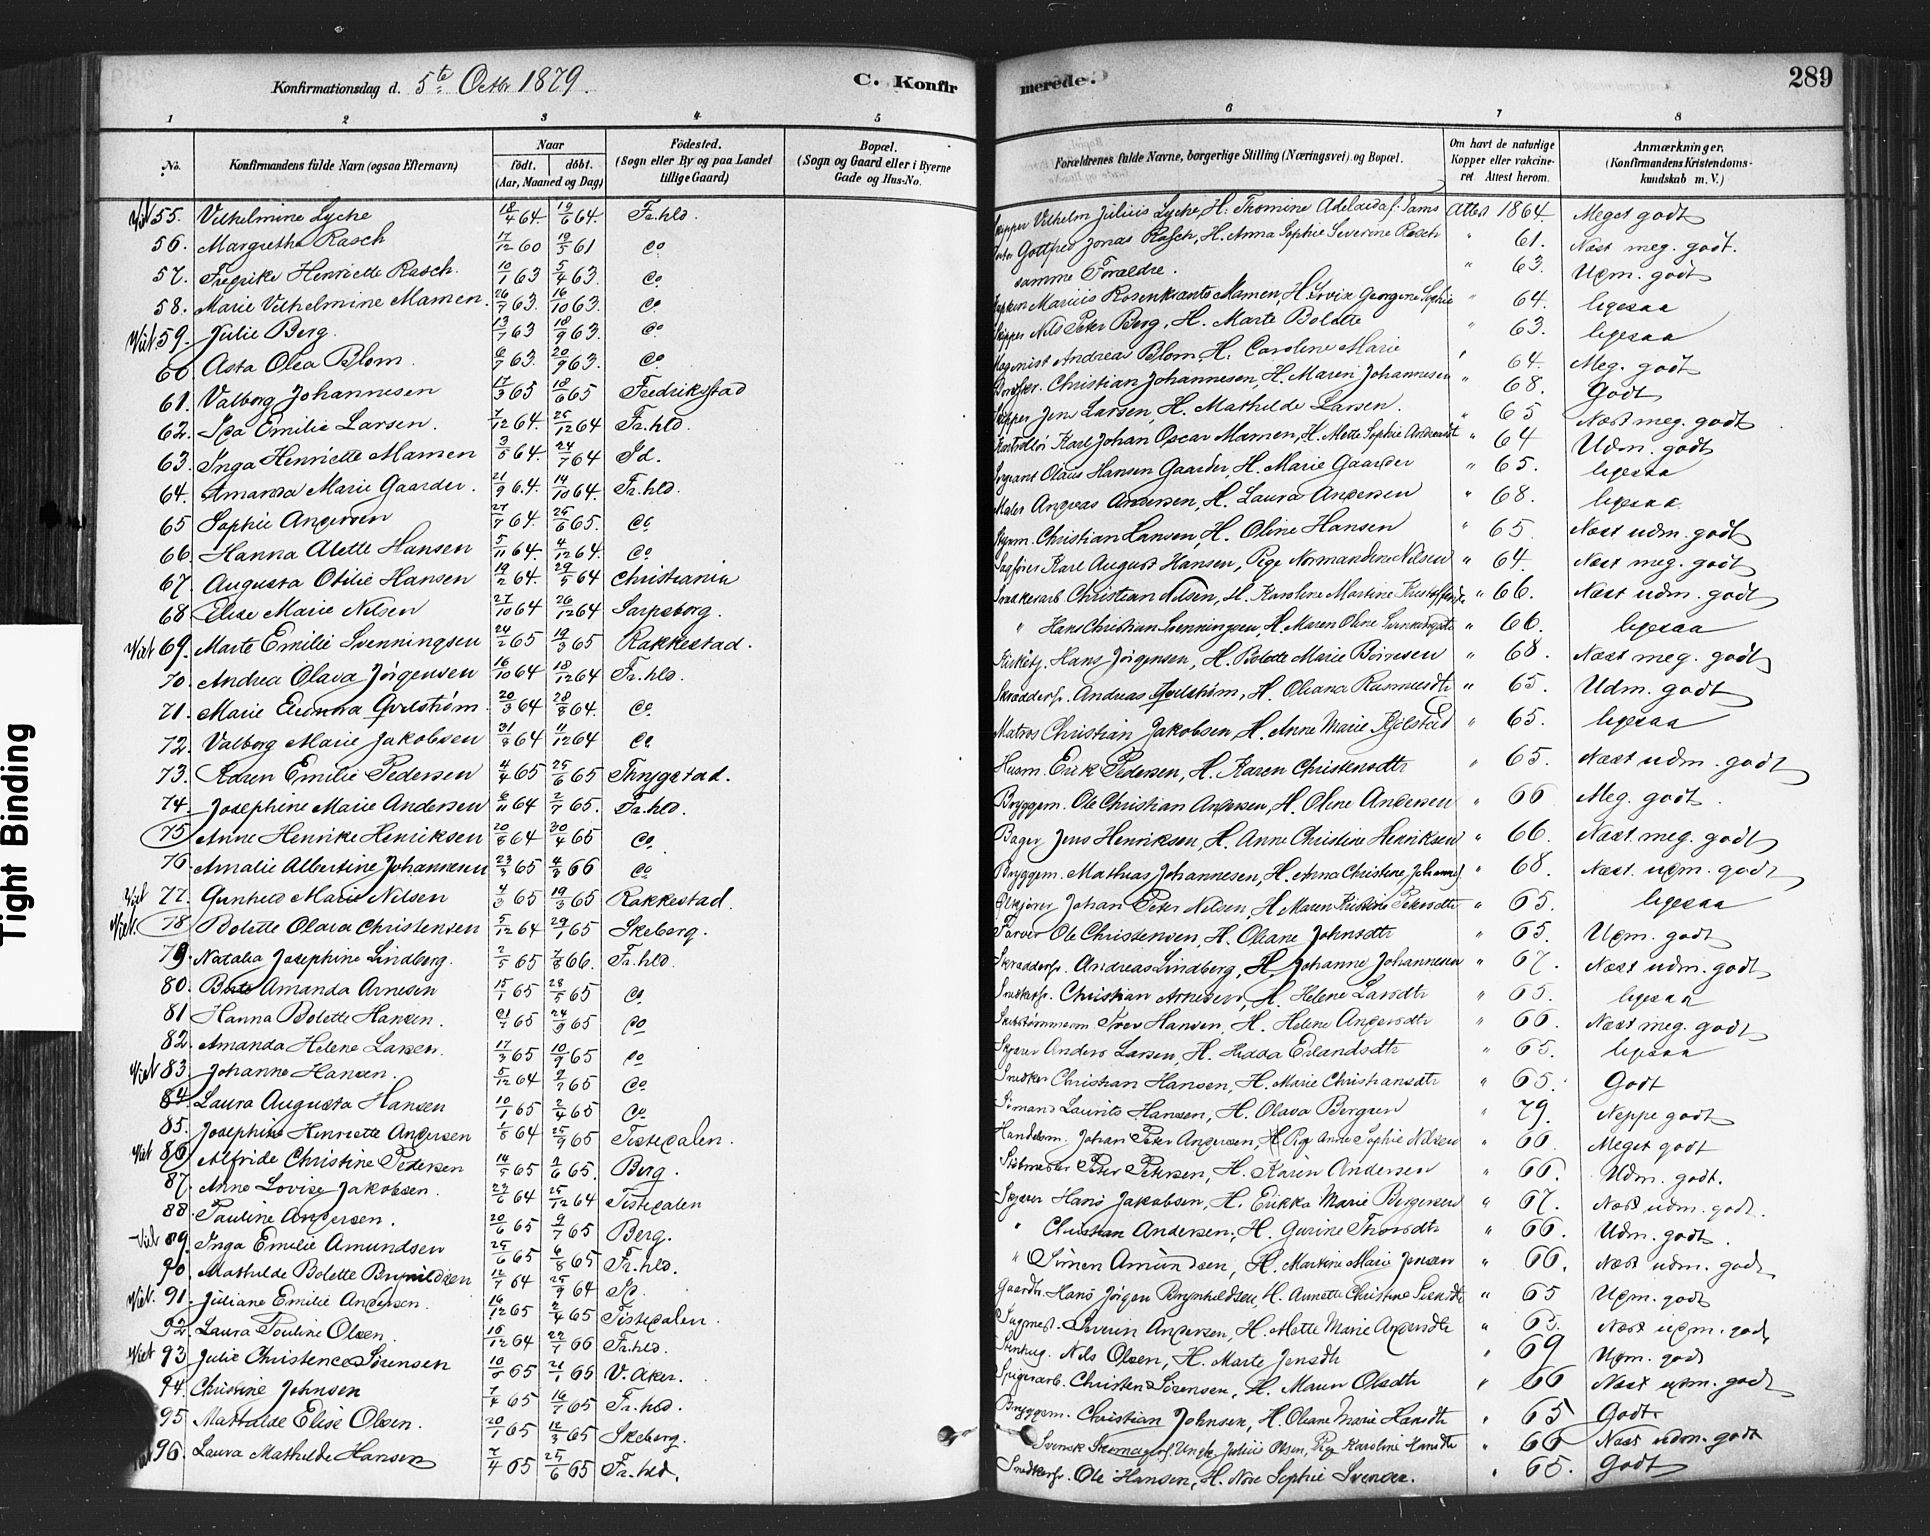 Konfirmationsdag d. 5te Octbr 1879. C. Konfir merede. 289
1 2 3 4 5 6 7 8
No. Konfirmandens fulde Navn (ogsaa Efternavn) Naar födt. döbt. (Aar, Maaned og Dag) Födested. (Sogn eller By og paa Landet tillige Gaard) Bopæl. (Sogn og Gaard eller i Byerne Gade og Hus-No. Forældrenes fulde Navne, borgerlige Stilling (Næringsvei) og Bopæl. Om havt de naturlige Kopper eller vakcineret Attest herom. Anmærkninger, (Konfirmandens Kristendomskundskab m. V.)
55. Vilhelmine Lyche 18/4 64 19/6 64. Fr.hld. Vilhelm Julius Lyche, H. Thomine Adelaida f. Sams Attest 1864. Meget godt
56. Margrethe Rasch 17/12 60 19/5 61 do Gottfred Jonas Rasch, H. Anna Sophie Severine Rasch " 61. Næst meg. godt.
57. Fredrike Henriette Rasch. 10/1 63 5/4 63. do samme Forældre. " 63. Udm. godt
58. Marie Vilhelmine Mamen. 26/7 63. 16/10 63. do Marius Rosenkrants Mamen, H. Lovise Georgine Sophie " 64. ligesaa
Viet 59. Julie Berg. 13/7 63 18/9 63. do Skipper Nils Peter Berg, H. Marte Bolette " 63. ligesaa
60 Asta Olea Blom. 6/7 63. 20/9 63. do Andreas Blom, H. Caroline Marie " 64. Meg. godt
61. Valborg Johannesen 17/3 65 18/6 65 Fredrikstad Christian Johannesen, H. Maren Johannesen " 68. Godt
62. Ida Emilie Larsen. 7/12 64. 25/12 64 Fr.hld. Skipper Jens Larsen, H. Mathilde Larsen. " 65 Næst meg. godt
63. Inga Henriette Mamen 3/5 64. 24/7 64 Id. Karl Johan Oscar Mamen, H. Mette Sophie " 64 Udm. godt
64. Amanda Marie Gaarder. 21/9 64. 14/10 64. Fr.hld. Sergeant Olaus Hansen Gaarder, H. Marie Gaarder " 65. ligesaa
65 Sophie Andersen 27/7 64. 25/6 65. do Maler Andreas Andersen, H. Laura Andersen " 68. ligesaa.
66. Hanna Alette Hansen 5/11 64. 4/12 64. do Christian Hansen, H. Oline Hansen " 65 Næst udm. godt
67. Augusta Otilie Hansen 19/2 64. 29/5 64 Christiania Sagfører Karl August Hansen, Pige Normandine Nilsen " 64. Næst meg. godt
68 Elise Marie Nilsen 27/10 64 26/12 64 Sarpsborg. Christian Nilsen, H. Karoline Martine " 66. Næst udm. godt
Viet 69. Marte Emilie Svenningsen 24/2 65 19/3 65 Rakkestad. " Hans Christian Svenningsen, H. Maren Oline " 66. ligesaa
70. Andrea Olava Jørgensen 16/10 64 18/12 64 Fr.hld. Hans Jørgensen, H. Bolette Marie Børresen " 68. Næst meg. godt
71. Marie Qvelstrøm 20/3 64 28/8 64. do Skræddersv. Andreas Qvelstrøm, H. Oleana Rasmusdtr " 65. Udm. godt
72. Valborg Marie Jakobsen 31/8 64 11/12 64 do Matros Christian Jakobsen, H. Anne Marie Kjølstad " 65. ligesaa
73. Karen Emilie Pedersen 4/4 65 25/6 65 Thrygstad. Husm. Erik Pedersen, H. Karen Christensdtr " 65. Næst udm. godt
74. Josephine Marie Andersen 6/11 64 2/7 65. Fr.hld. Bryggem. Ole Christian Andersen, H. Oline Andersen " 66 Meg. godt.
75 Anne Henrike Henriksen 20/8 64 30/4 65 do Bager Jens Henriksen, H. Anne Christine Henriksen " 66. Næst meg. godt
76. Amalie Albertine Johannesen 23/3 65 4/3 66 do Bryggem. Mathias Johannesen, H. Anna Christine " 68. Næst. udm. godt
Viet 77. Gunhild Marie Nilsen 4/3 65 19/3 65 Rakkestad. Johan Peter Nilsen, H. Maren Kristine " 65. ligesaa
Viet. 78 Bolette Olava Christensen 5/12 64 29/1 65 Skeberg. Farver Ole Christensen, H. Oliane Johnsdtr " 65. Udm. godt
79. Natalia Josephine Lindberg. 2/5 65 7/8 66. Fr.hld. Skræddersv. Andreas Lindberg, H. Johanne Johannesen " 67. Næst udm. godt
80. Amanda Arnesen 15/1 65 28/5 65 do Snedkersv. Christian Arnesen, H. Helene Larsdtr " 65. ligesaa
81 Hanna Bolette Hansen. 21/7 65 24/9 65 do Iver Hansen, H. Helene Andersdtr " 66. Næst meg. godt
82. Amanda Helene Larsen. 17/3 65 10/9 65 do Anders Larsen, H. Hedda Erlandsdtr " 65. ligesaa
Viet 83. Johanne Hansen. 5/12 64 9/7 65 do Snedker Christian Hansen, H. Marie Christiansdtr " 65. Godt
84. Laura Augusta Hansen 10/1 65 2/4 65 do Sömand Laurits Hansen, H. Olava Bergren " 79. Neppe godt
85. Josephine Henriette Andersen 1/8 64 25/9 65 Tistedalen. Handelsm. Johan Peter Andersen, Pige Anne Sophie Nilsen " 66. Meget godt
Viet 86 Alfride Christine Pedersen 14/5 65 2/6 65. Berg. Peter Petersen, H. Karen Andersen " 66. Udm. godt.
87. Anne Lovise Jakobsen. 23/6 64 25/12 64 Tistedalen Hans Jakobsen, H. Erikka Marie Bergersen " 67. Næst udm. godt.
88. Pauline Andersen. 20/6 65 9/7 65 Berg. " Christian Andersen, H. Gurine Thorsdtr " 66. Udm. godt.
Viet 89. Inga Emilie Amundsen 25/6 65 6/8 65 Fr.hld. " Simen Amundsen, H. Martine Marie Jensen " 66. Næst udm. godt
90. Mathilde Bolette Brynildsen 12/7 64 25/9 64 Id. Gaardbr. Hans Jørgen Brynhildsen, H. Annette Christine " 65 Udm. godt
Viet. 91. Juliane Emilie Andersen. 16/12 65 2/4 65 Tistedalen. Severin Andersen, H. Mette Marie Andersdtr " 65. Næst udm. godt
92. Laura Pouline Olsen. 16/12 64 22/7 66 Fr.hld. Stenhug. Nils Olsen, H. Marte Jensdtr " 69 Udm. godt
Viet 93 Julie Christence Sørensen 65 21/1 65 V. Aker. Spigerarb. Christen Sørensen, H. Maren Olsdtr " 66 Næst udm. godt
94. Christine Johnsen 7/4 65 16/7 65 Fr.hld. Bryggem. Christian Johnsen, H. Oleane Marie Hansdtr " 65 Godt.
95 Mathilde Elise Olsen. 20/1 65 12/3 65 Skeberg. Svensk Ungk. Julius Olsen, Pige Karoline Hansdtr " 66 Næst udm. godt
96. Laura Mathilde Hansen 7/4 65 25/6 65 Fr.hld. Snedkersv. Ole Hansen, H. Sophie Svensen. " 65. Godt
Tight Binding